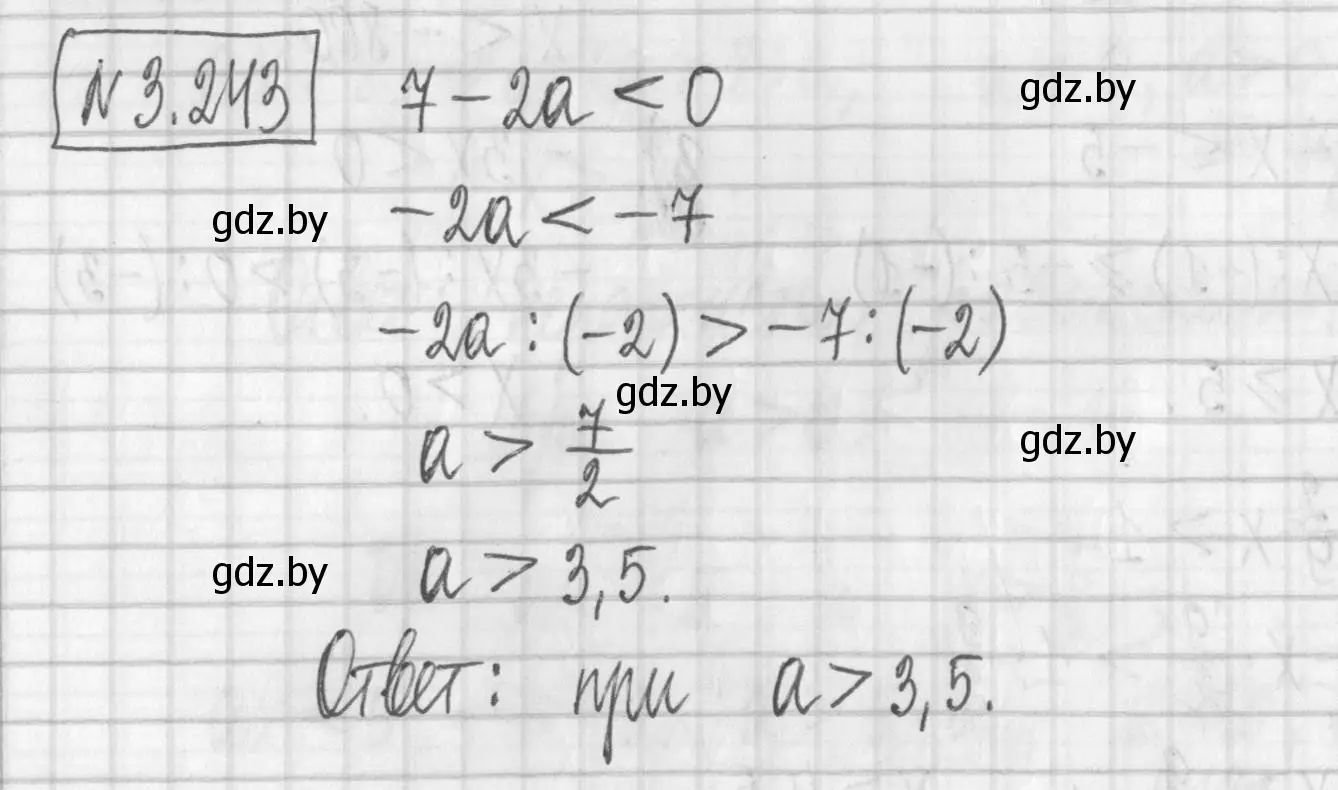 № 3.243 7 - 2a < 0 gdz.by
gdz.by -2a < -7
-2a : (-2) > -7 : (-2)
gdz.by
a > 7/2 gdz.by
gdz.by a > 3,5.
Ответ: при a > 3,5.